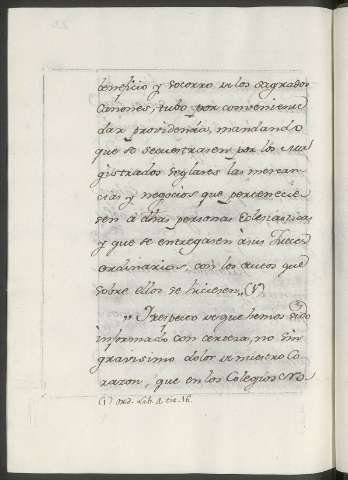 beneficio y socorro de los sagrados
Canones; tubo por conveniente
dar providencia, mandando
que se secuestrasen por los Ma
gistrados seglares las mercan
cias y negocios que pertenecie
sen á dhas personas Eclesiasticas
y que se entregasen à sus Jueces
ordinarios, con los autos que
sobre ellos se hiciesen„ (1)
„ Y respecto de que hemos sido
informado con certeza, no sin
gravisimo dolor de nuestro Co
razon, que en los Colegios
(1) Ord. Lib. 1. tit. 16.